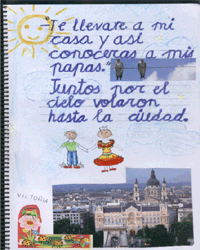 "Te llevare a mi
casa y asi
conoceras a mis
papas."
Juntos por el
cielo volaron
hasta la ciudad.
VICTORIA